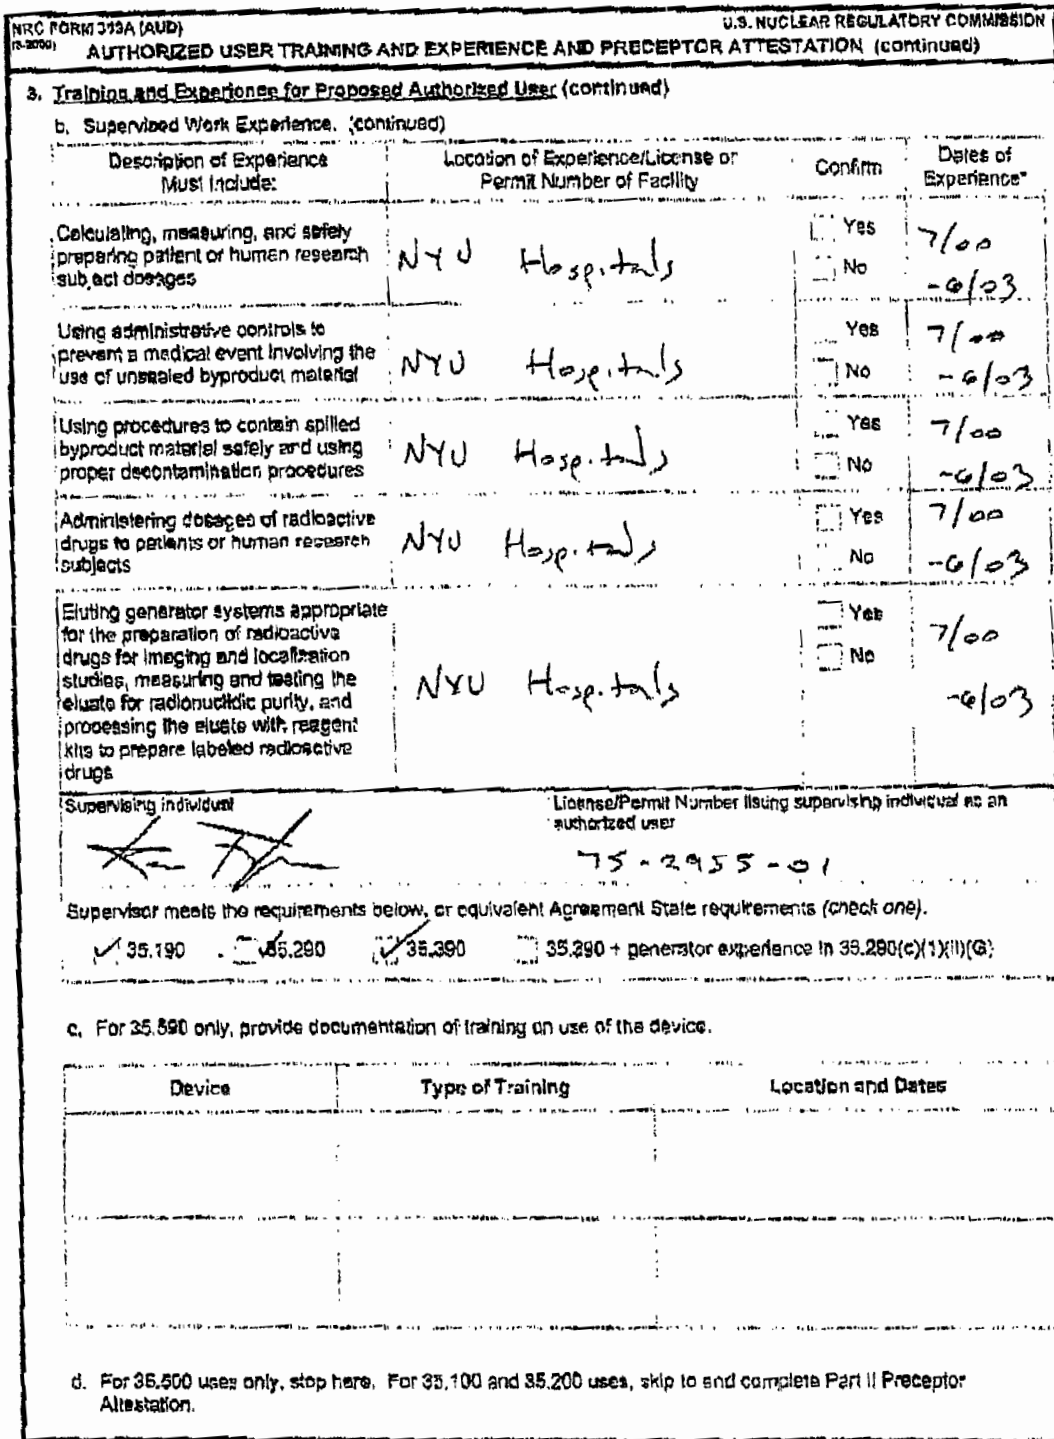 NRC FORM 313A (AUD)
U.S. NUCLEAR REGULATORY COMMISSION
AUTHORIZED USER TRAINING AND EXPERIENCE AND PRECEPTOR ATTESTATION (continued)
3. Training and Experience for Proposed Authorized User (continued)
b. Supervised Work Experience. (continued)
Description of Experience
Must Include:
Location of Experience/License or
Permit Number of Facility
Confirm
Dates of
Experience*
Calculating, measuring, and safely
preparing patient or human research
subject dosages
NYU Hospitals
Yes
No
7/00
-6/03
Using administrative controls to
prevent a medical event involving the
use of unsealed byproduct material
NYU Hospitals
Yes
No
7/00
-6/03
Using procedures to contain spilled
byproduct material safely and using
proper decontamination procedures
NYU Hospitals
Yes
No
7/00
-6/03
Administering dosages of radioactive
drugs to patients or human research
subjects
NYU Hospitals
Yes
No
7/00
-6/03
Eluting generator systems appropriate
for the preparation of radioactive
drugs for imaging and localization
studies, measuring and testing the
eluate for radionuclidic purity, and
processing the eluate with reagent
kits to prepare labeled radioactive
drugs
NYU Hospitals
Yes
No
7/00
-6/03
Supervising individual
License/Permit Number listing supervising individual as an
authorized user
75-2955-01
Supervisor meets the requirements below, or equivalent Agreement State requirements (check one).
✓ 35.190 ✓ 35.290 ✓ 35.390 35.390 + generator experience in 35.290(c)(1)(ii)(G)
c. For 35.590 only, provide documentation of training on use of the device.
Device
Type of Training
Location and Dates
d. For 35.500 uses only, stop here. For 35.100 and 35.200 uses, skip to and complete Part II Preceptor
Attestation.